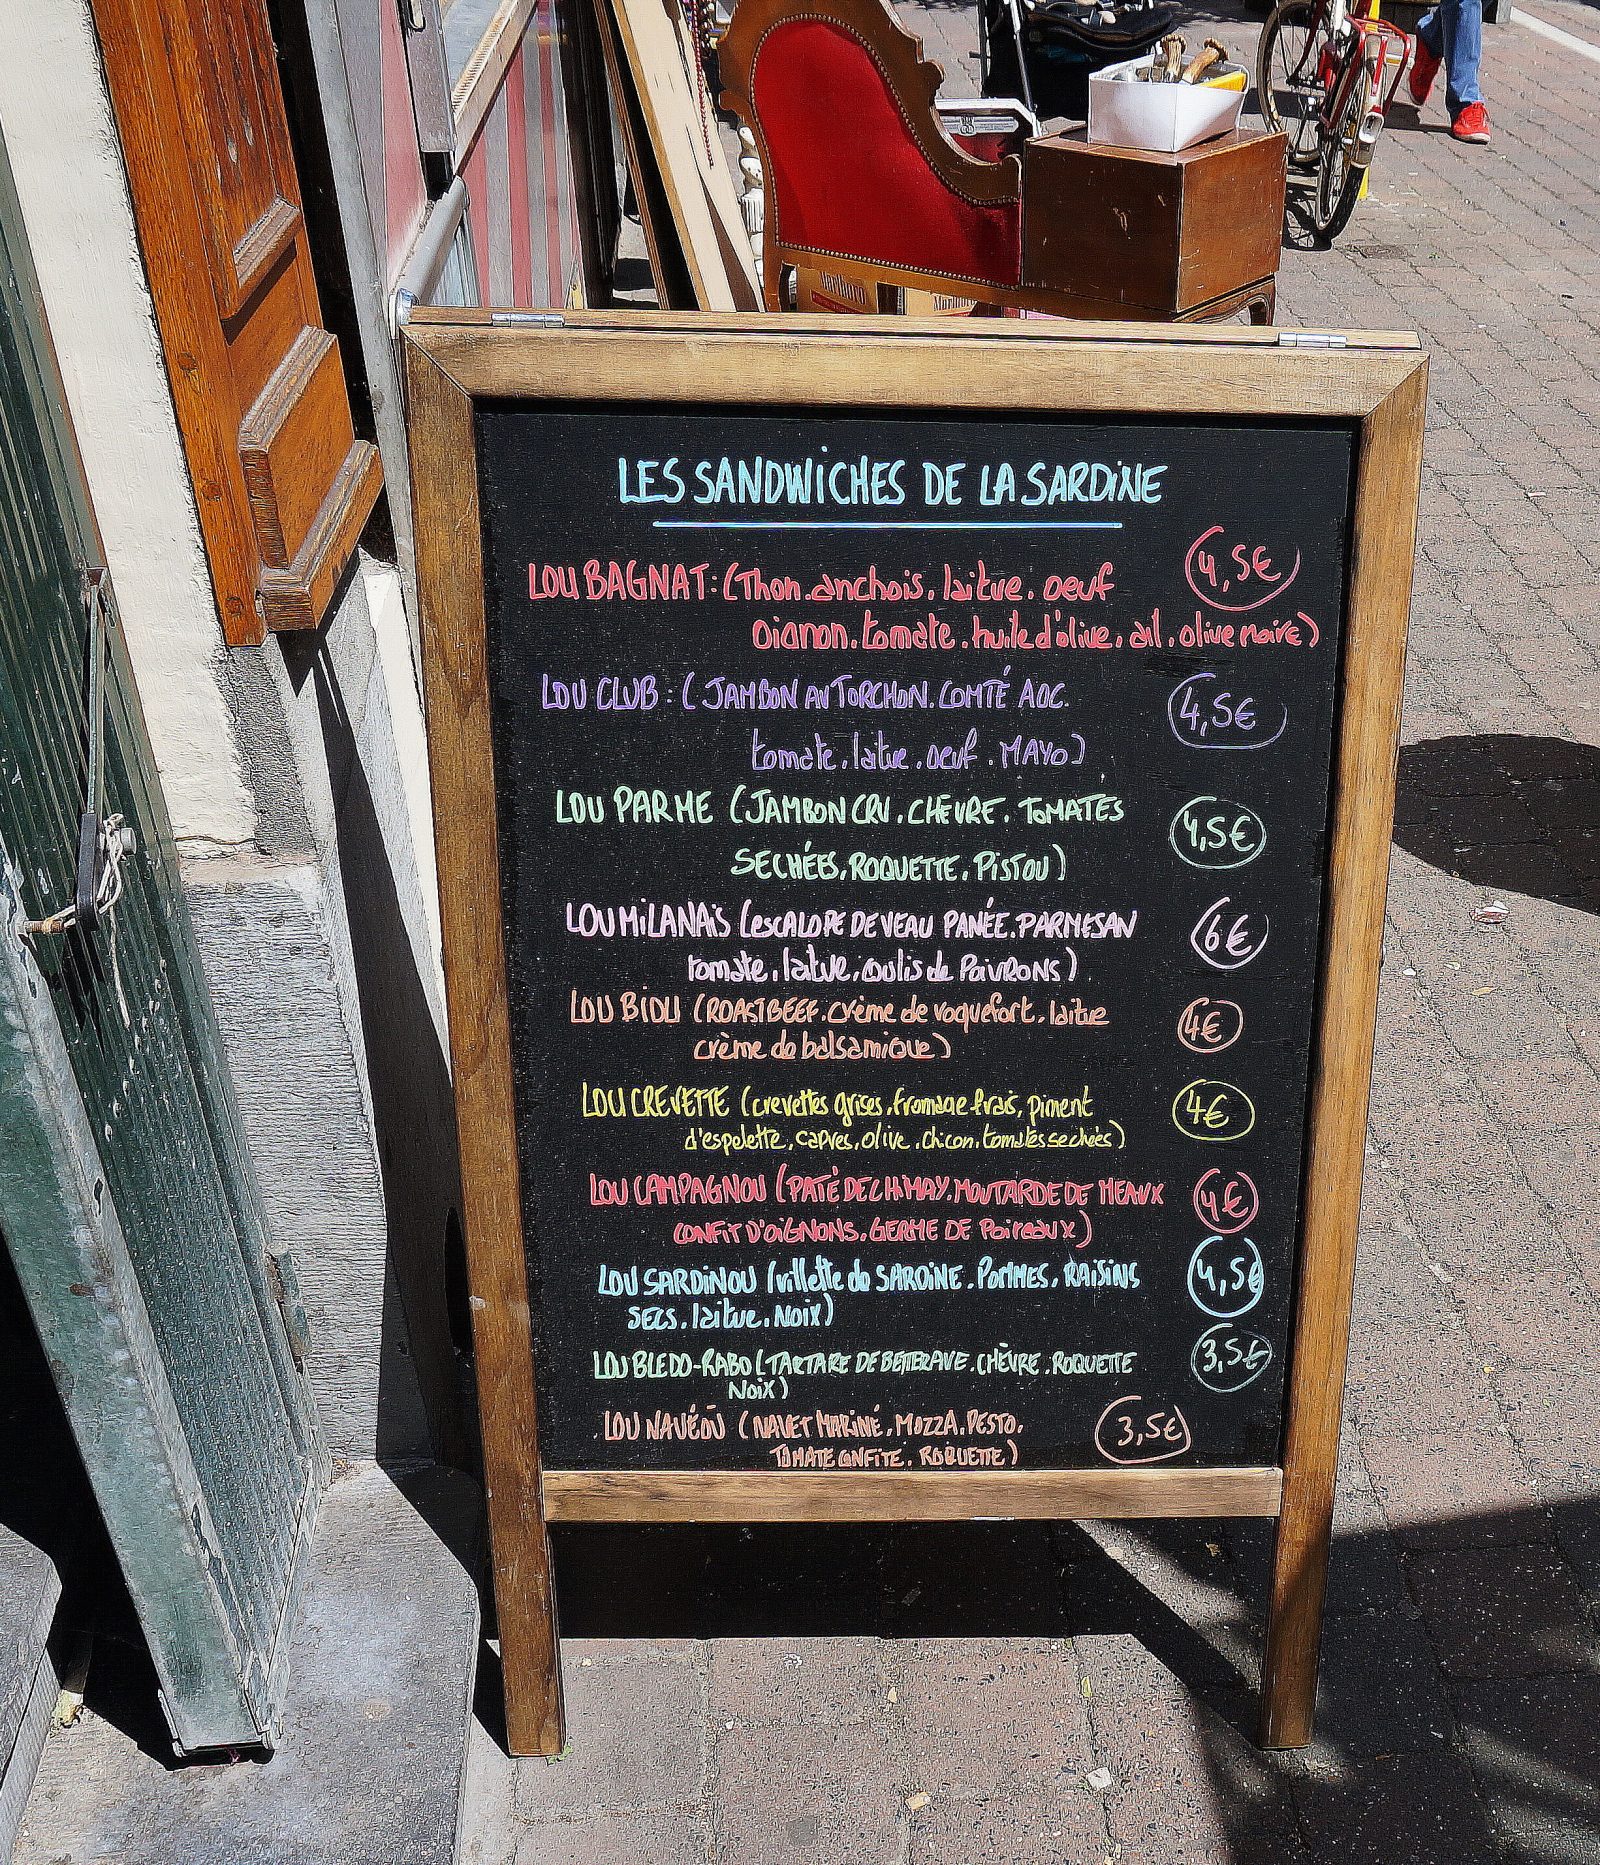 Marlboro
Marlboro
LES SANDWICHES DE LA SARDINE
LOU BAGNAT : (Thon. anchois. laitue. oeuf 4,5€
oignon. tomate. huile d'olive. ail. olive noire)
LOU CLUB : (JAMBON AU TORCHON. COMTÉ AOC. 4,5€
tomate. laitue. oeuf. MAYO)
LOU PARME (JAMBON CRU. CHÈVRE. TOMATES 4,5€
SECHÉES. ROQUETTE. PISTOU)
LOU MILANAIS (ESCALOPE DE VEAU PANÉE. PARMESAN 6€
tomate. laitue. coulis de POIVRONS)
LOU BIDU (ROASTBEEF. crème de roquefort. laitue 4€
crème de balsamique)
LOU CREVETTE (crevettes grises. fromage frais, piment 4€
d'espelette. capres. olive. chicon. tomates sechées)
LOU CAMPAGNOU (PATÉ DE CHIMAY. MOUTARDE DE MEAUX 4€
CONFIT D'OIGNONS. GERME DE POIREAUX)
LOU SARDINOU (rillette de SARDINE. POMMES. RAISINS 4,5€
SECS. laitue. NOIX)
LOU BLEDO-RABO (TARTARE DE BETTERAVE. CHÈVRE. ROQUETTE 3,5€
NOIX)
LOU NAVÉOÙ (NAVET MARINÉ. MOZZA. PESTO. 3,5€
TOMATE CONFITE. ROQUETTE)